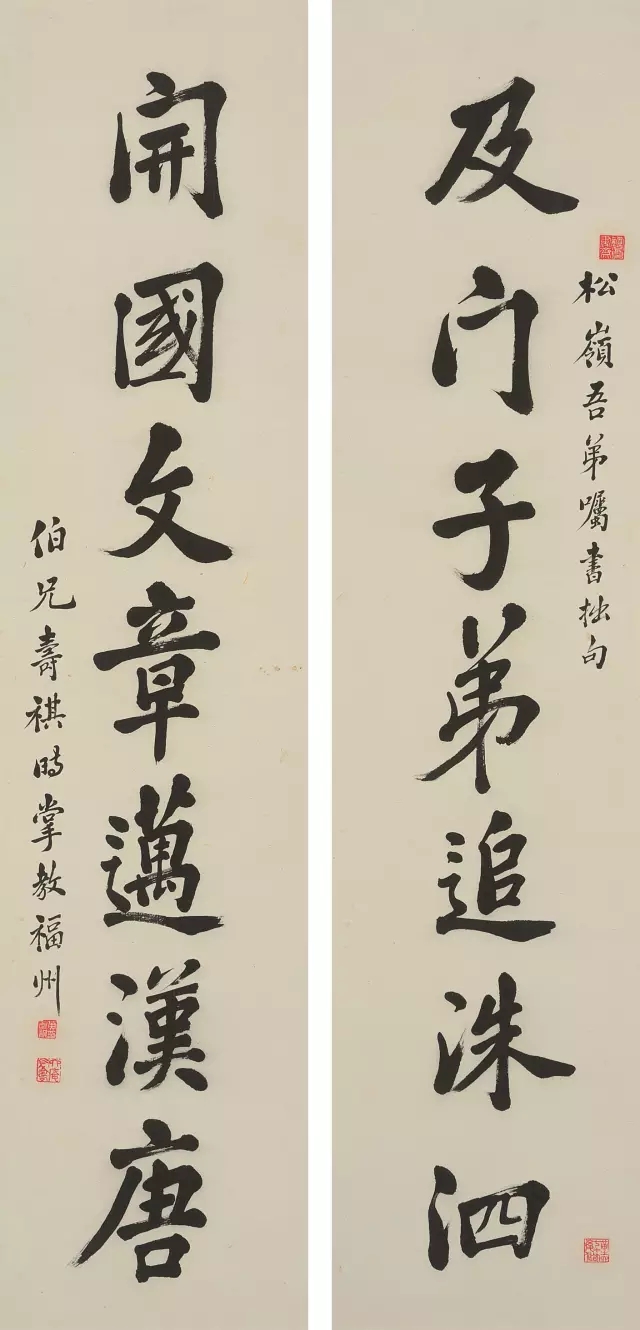 及门子弟追洙泗
松嶺吾弟囑書拙句
開國文章邁漢唐
伯兄壽祺時掌教福州